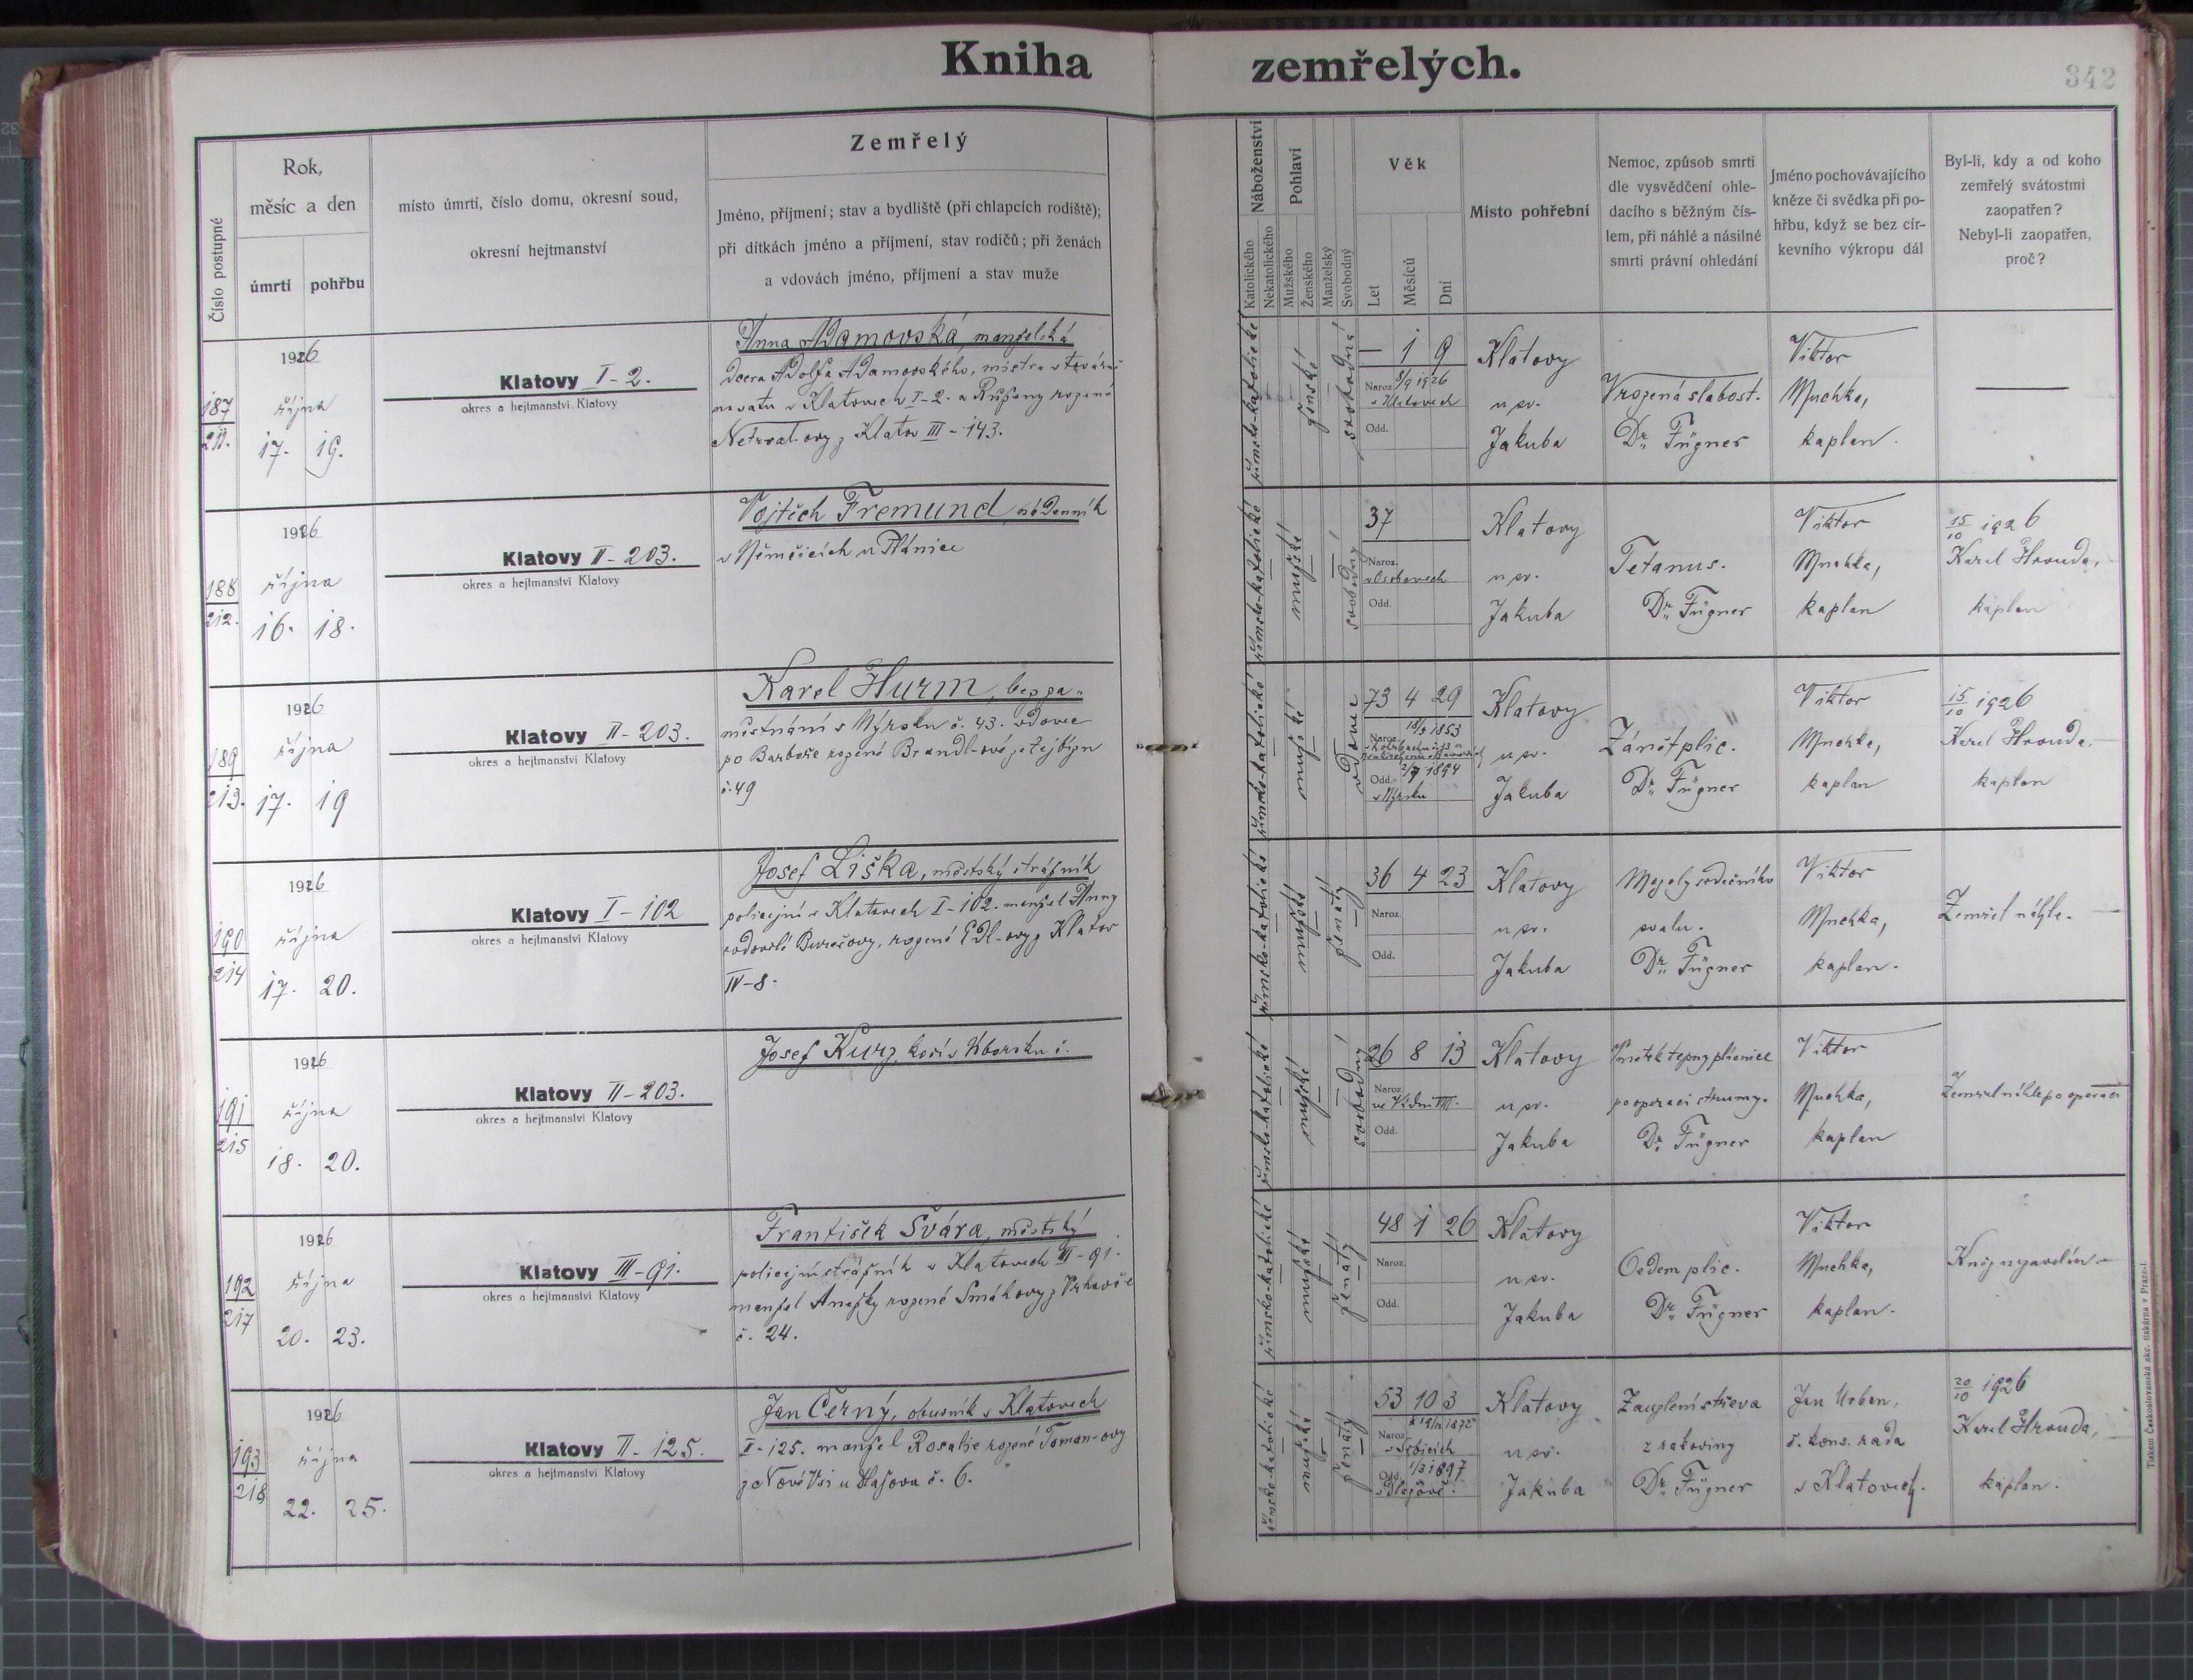 Kniha zemřelých.
342
Číslo postupné
Rok,
měsíc a den
úmrtí
pohřbu
místo úmrtí, číslo domu, okresní soud,
okresní hejtmanství
Zemřelý
Jméno, příjmení; stav a bydliště (při chlapcích rodiště);
při dítkách jméno a příjmení, stav rodičů; při ženách
a vdovách jméno, příjmení a stav muže
Náboženství
Katolického
Nekatolického
Pohlaví
Mužského
Ženského
Manželský
Svobodný
Věk
Let
Měsíců
Dní
Místo pohřební
Nemoc, způsob smrti
dle vysvědčení ohle-
dacího s běžným čís-
lem, při náhlé a násilné
smrti právní ohledání
Jméno pochovávajícího
kněze či svědka při po-
hřbu, když se bez cír-
kevního výkropu dál
Byl-li, kdy a od koho
zemřelý svátostmi
zaopatřen?
Nebyl-li zaopatřen,
proč?
187
211.
1926
října
17. 19.
Klatovy I-2.
okres a hejtmanství Klatovy
Anna Adamovská, manželská
dcera Adolfa Adamovského, mistra
v Klatovech I-2. a Růženy rozené
Netrval-ovy z Klatov III-143.
římsko-katolické
ženské
svobodná
— 1 9
Naroz. 8/9 1926
v Klatovech
Odd.
Klatovy
u sv.
Jakuba
Vrozená slabost.
Dr. Fügner
Viktor
Muchka,
kaplan.
188
212.
1926
října
16. 18.
Klatovy II-203.
okres a hejtmanství Klatovy
Vojtěch Fremund, nádenník
v Němčicích u Plánice
římsko-katolické
mužské
svobodný
37
Naroz.
Odd.
Klatovy
u sv.
Jakuba
Tetanus.
Dr. Fügner
Viktor
Muchka,
kaplan
15/10 1926
Karel Hrouda,
kaplan
189
213.
1926
října
17. 19
Klatovy II-203.
okres a hejtmanství Klatovy
Karel Hurm, bez za-
městnání v Nýrsku č. 43. vdovec
po Barboře rozené Brandl-ové
č. 49
římsko-katolické
mužské
vdovec
73 4 29
18/5 1853
Naroz.
Odd. 2/7 1894
v Nýrsku
Klatovy
u sv.
Jakuba
Zánět plic.
Dr. Fügner
Viktor
Muchka,
kaplan
15/10 1926
Karel Hrouda,
kaplan
190
214
1926
října
17. 20.
Klatovy I-102
okres a hejtmanství Klatovy
Josef Liška, městský strážník
policejní v Klatovech I-102. manžel Anny
ovdovělé Burešovy, rozené Edl-ovy z Klatov
IV-8.
římsko-katolické
mužské
ženatý
36 4 23
Naroz.
Odd.
Klatovy
u sv.
Jakuba
srdečního
svalu.
Dr. Fügner
Viktor
Muchka,
kaplan.
Zemřel náhle.
191
215
1926
října
18. 20.
Klatovy II-203.
okres a hejtmanství Klatovy
Josef Kurz, kočí v Uborsku č.
římsko-katolické
mužské
svobodný
26 8 13
Naroz.
ve Vídni VIII.
Odd.
Klatovy
u sv.
Jakuba
Vmetek tepny plicnice
po operaci strumy.
Dr. Fügner
Viktor
Muchka,
kaplan
Zemřel náhle po operaci
192
217
1926
října
20. 23.
Klatovy III-91.
okres a hejtmanství Klatovy
František Švára, městský
policejní strážník v Klatovech III-91.
manžel Anežky rozené Smákovy z Vrhavče
č. 24.
římsko-katolické
mužské
ženatý
48 1 26
Naroz.
Odd.
Klatovy
u sv.
Jakuba
Oedem plic.
Dr. Fügner
Viktor
Muchka,
kaplan.
Kněz nezavolán
193
218
1926
října
22. 25.
Klatovy II-125.
okres a hejtmanství Klatovy
Jan Černý, obuvník v Klatovech
I-125. manžel Rosalie rozené Toman-ovy
z Nové Vsi u č. 6.
římsko-katolické
mužské
ženatý
53 10 3
Naroz.
v Srbicích
Odd. 1/3 1897
Klatovy
u sv.
Jakuba
Zauzlení střeva
z rakoviny
Dr. Fügner
Jan Urban,
b. kons. rada
v Klatovech.
20/10 1926
Karel Hrouda,
kaplan.
Tiskem Českoslovanská akc. tiskárna v Praze-I